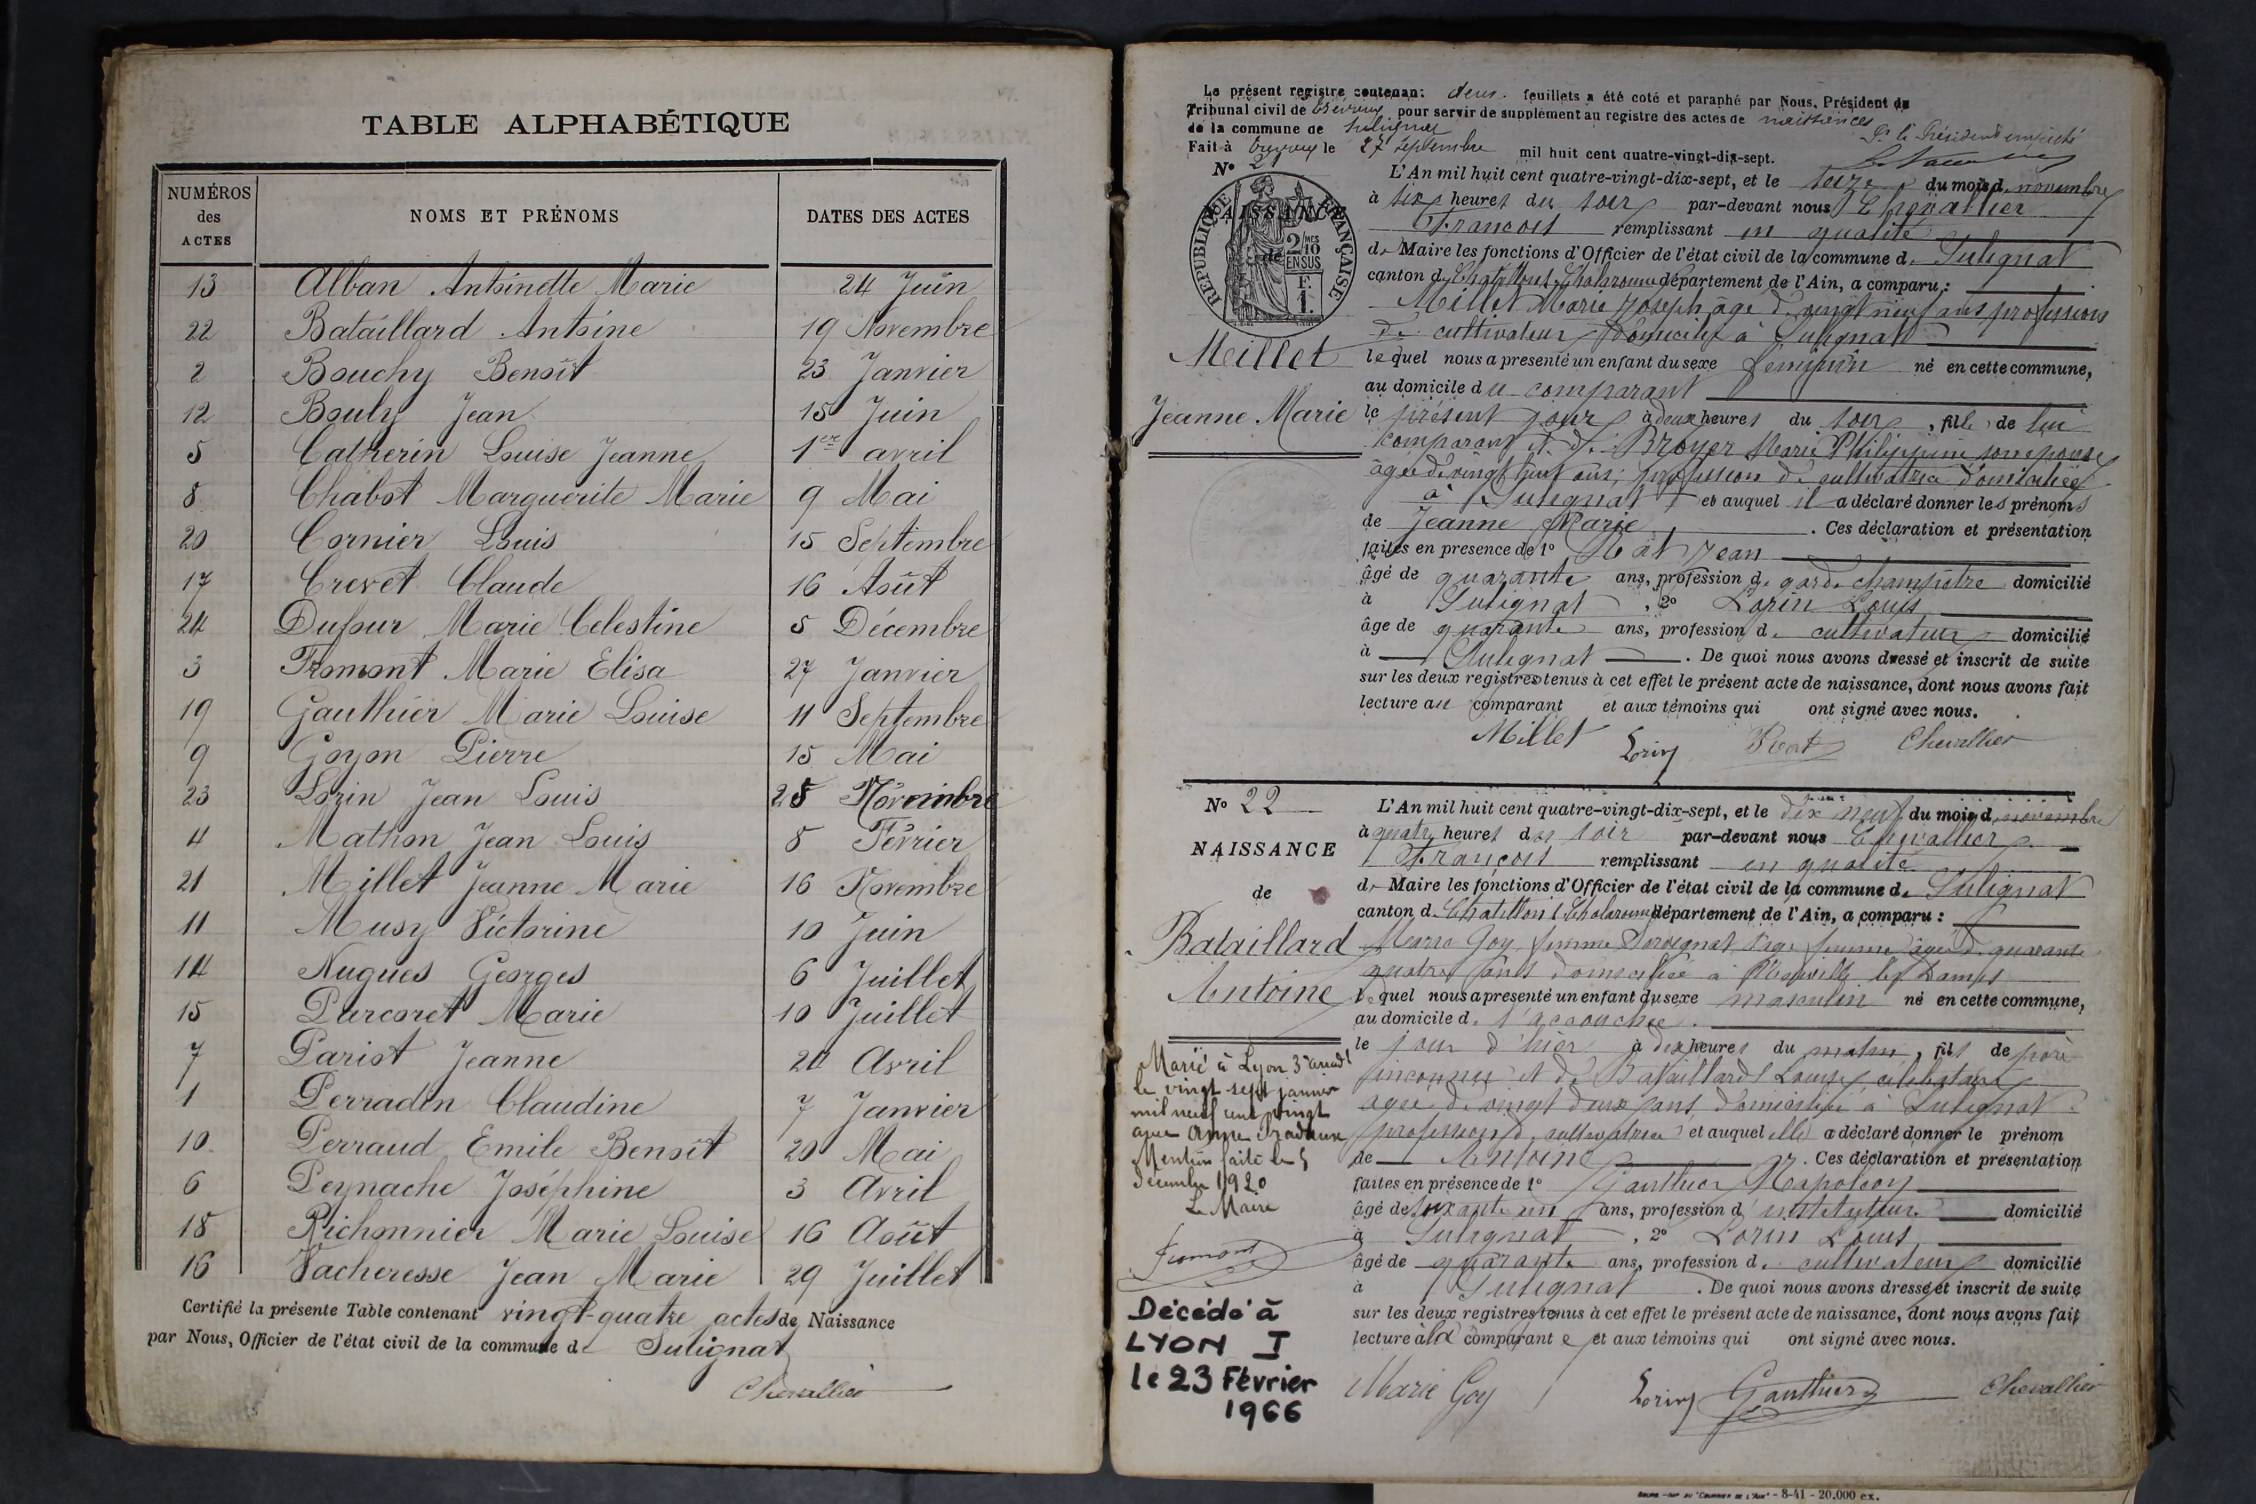 TABLE ALPHABÉTIQUE
NUMÉROS des ACTES
NOMS ET PRÉNOMS
DATES DES ACTES
13 Alban Antoinette Marie 24 Juin
22 Bataillard Antoine 19 Novembre
2 Bouchy Benoît 23 Janvier
12 Bouly Jean 15 Juin
5 Catherin Louise Jeanne 1er avril
8 Chabot Marguerite Marie 9 Mai
20 Cornier Louis 15 Septembre
17 Crevet Claude 16 Août
24 Dufour Marie Celestine 5 Décembre
3 Fromont Marie Elisa 27 Janvier
19 Gauthier Marie Louise 11 Septembre
9 Goyon Pierre 15 Mai
23 Lorin Jean Louis 25 Novembre
4 Mathon Jean Louis 8 Février
21 Millet Jeanne Marie 16 Novembre
11 Musy Victorine 10 Juin
14 Nugues Georges 6 Juillet
15 Parcoret Marie 10 Juillet
7 Pariot Jeanne Avril
1 Perradin Claudine 7 Janvier
10 Perraud Emile Benoît 20 Mai
6 Peynache Joséphine 3 Avril
18 Richonnier Marie Louise 16 Août
16 Vacheresse Jean Marie 29 Juillet
Certifié la présente Table contenant vingt-quatre actes de Naissance
par Nous, Officier de l'état civil de la commune d Sulignat
Chevallier
Le présent registre contenant deux feuillets a été coté et paraphé par Nous, Président du
Tribunal civil de Trévoux pour servir de supplément au registre des actes de naissances
de la commune de Sulignat
Pr le Président empêché
Fait à Trévoux le 27 septembre mil huit cent quatre-vingt-dix-sept.
N° 21
NAISSANCE
de
RÉPUBLIQUE FRANÇAISE
2/10mes EN SUS
1 F.
Millet
Jeanne Marie
L'An mil huit cent quatre-vingt-dix-sept, et le seize du mois d novembre
à six heures du soir par-devant nous Chevallier
François remplissant en qualité
de Maire les fonctions d'Officier de l'état civil de la commune de Sulignat
canton de Chatillon s Chalaronne département de l'Ain, a comparu :
Millet Marie Joseph âgé de vingt neuf ans profession
de cultivateur domicilié à Sulignat
lequel nous a présenté un enfant du sexe féminin né en cette commune,
au domicile du comparant
le présent jour à deux heures du soir, fille de lui
comparant et de Broyer Marie Philippine son épouse
âgée de vingt huit ans, profession de cultivatrice domiciliée
à Sulignat et auquel il a déclaré donner les prénoms
de Jeanne Marie . Ces déclaration et présentation
faites en présence de 1° Jean
âgé de quarante ans, profession de garde champêtre domicilié
à Sulignat, 2° Lorin Louis
âgé de quarante ans, profession de cultivateur domicilié
à Sulignat . De quoi nous avons dressé et inscrit de suite
sur les deux registres tenus à cet effet le présent acte de naissance, dont nous avons fait
lecture au comparant et aux témoins qui ont signé avec nous.
Millet Lorin Chevallier
N° 22
NAISSANCE
de
Bataillard
Antoine
L'An mil huit cent quatre-vingt-dix-sept, et le dix neuf du mois d novembre
à quatre heures du soir par-devant nous Chevallier
François remplissant en qualité
de Maire les fonctions d'Officier de l'état civil de la commune de Sulignat
canton de Chatillon s Chalaronne département de l'Ain, a comparu :
Marie Goy femme sage femme âgée de quarante
quatre ans domiciliée à l'Neuville les Dames
lequel nous a présenté un enfant du sexe masculin né en cette commune,
au domicile de l'accouchée.
le jour d'hier à dix heures du matin, fils de père
inconnu et de Bataillard Louise célibataire
âgée de vingt deux ans, domiciliée à Sulignat
profession de cultivatrice et auquel elle a déclaré donner le prénom
de Antoine . Ces déclaration et présentation
faites en présence de 1° Gauthier Napoléon
âgé de soixante un ans, profession d instituteur domicilié
à Sulignat, 2° Lorin Louis
âgé de quarante ans, profession de cultivateur domicilié
à Sulignat . De quoi nous avons dressé et inscrit de suite
sur les deux registres tenus à cet effet le présent acte de naissance, dont nous avons fait
lecture à la comparante et aux témoins qui ont signé avec nous.
Marie Goy Lorin Gauthier Chevallier
Marié à Lyon 3e arrondt
le vingt sept janvier
mil neuf cent vingt
avec Anne
Mention faite le 5
décembre 1920
Le Maire
Fromont
Décédé à
LYON I
le 23 Février
1966
"COURRIER DE L'AIN" - 8-41 - 20.000 ex.